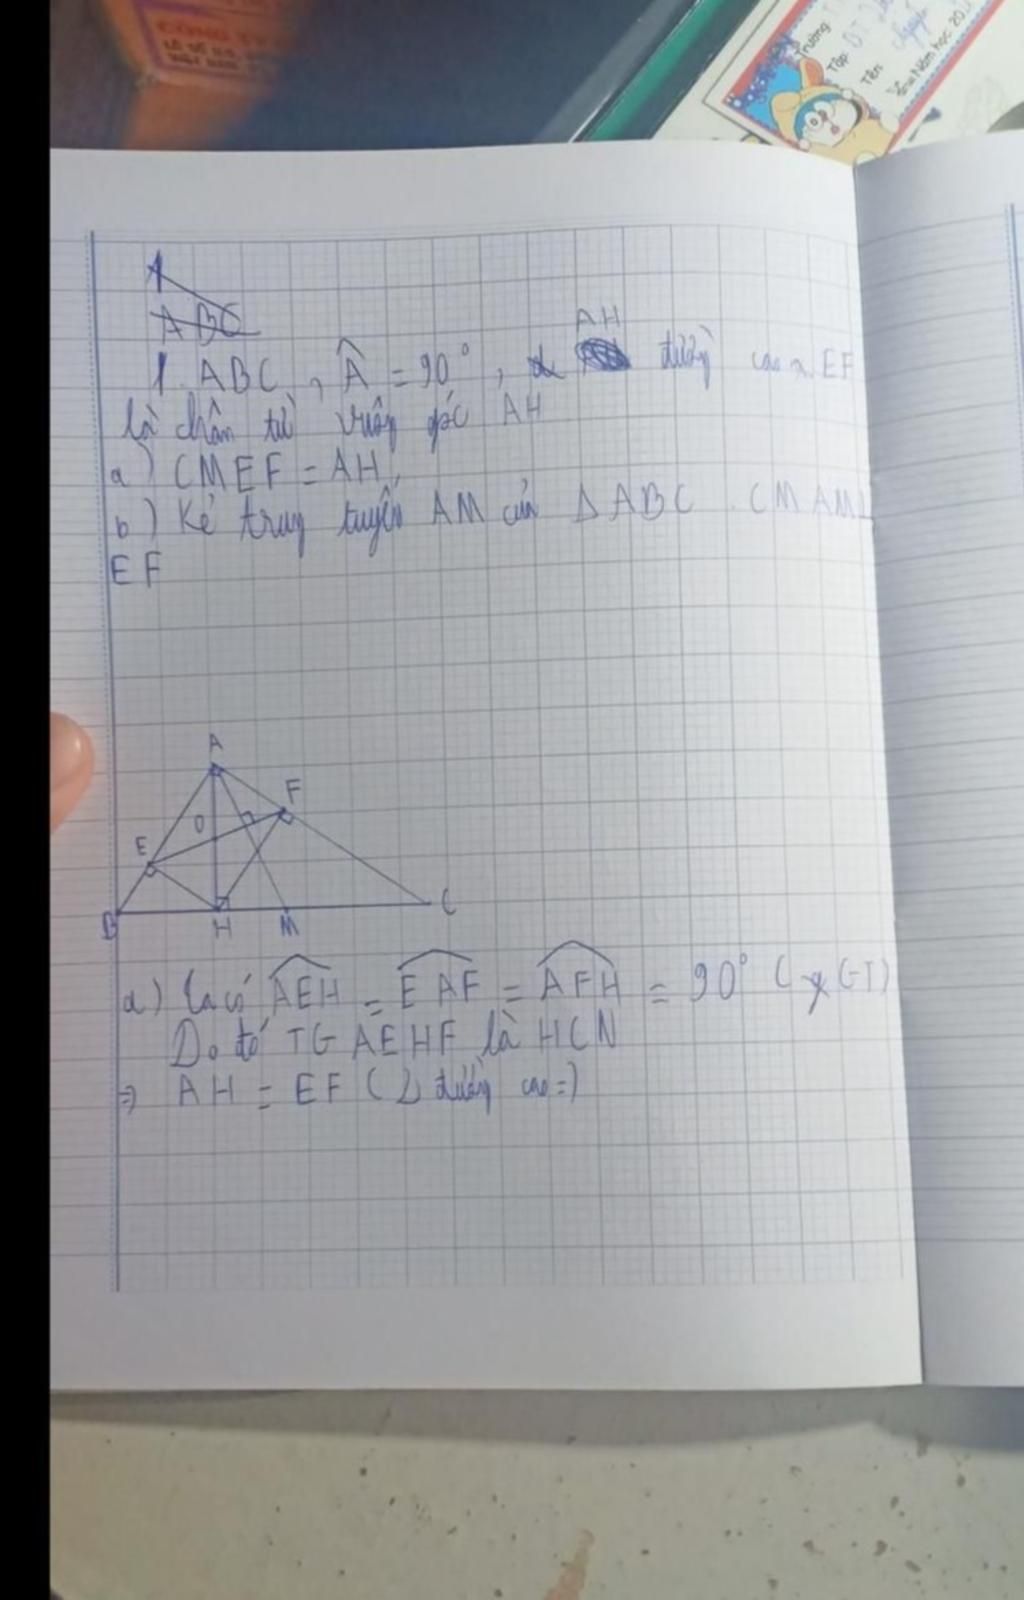 CÔNG TY
Trường
Tập:
Tên
Năm học 20
A
ABC
AH
1. ABC, Â = 90°, đường cao. EF
là chân từ vuông góc AH
a) CM EF = AH.
b) Kẻ trung tuyến AM của Δ ABC. CM AM⊥
EF
A
F
O
E
B
H
M
C
a) Ta có AEH = EAF = AFH = 90° (GT)
Do đó TG AEHF là HCN
=> AH = EF (2 đường cao =)